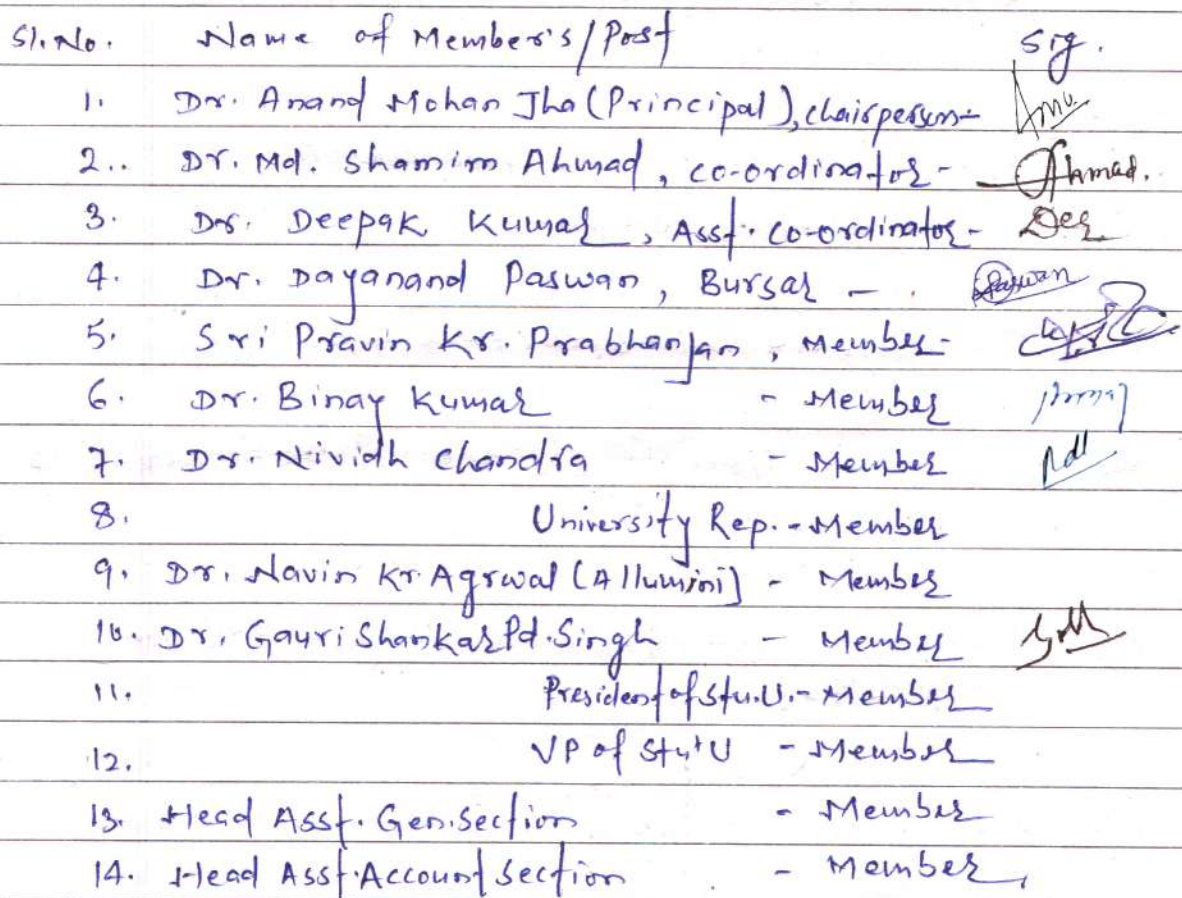 Sl. No. Name of Member's/Post Sig.
1. Dr. Anand Mohan Jha (Principal), chairperson-
2.. Dr. Md. Shamim Ahmad, co-ordinator - Ahmad.
3. Dr. Deepak Kumar, Asst. co-ordinator-
4. Dr. Dayanand Paswan, Bursar - Paswan
5. Sri Pravin Kr. Prabhanjan, Member-
6. Dr. Binay Kumar - Member
7. Dr. Nividh Chandra - Member
8. University Rep. - Member
9. Dr. Navin Kr. Agrwal (Allumini) - Member
10. Dr. Gauri Shankar Pd. Singh - Member
11. President of Stu.U. - Member
12. VP of Stu.U - Member
13. Head Asst. Gen. Section - Member
14. Head Asst. Account Section - Member,